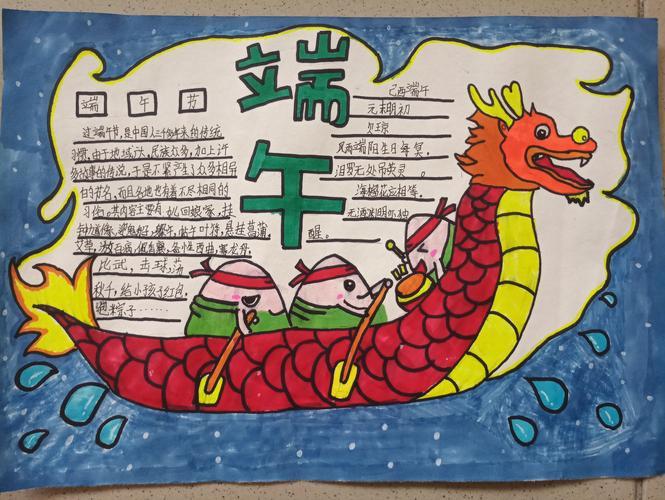 端午
端 午 节
过端午节，是中国人二千多年来的传统
习惯，由于地域广大，民族众多，加上许
多故事的传说，于是不紧产生了众多相异
的节名，而且各地也有着不尽相同的
习俗。其内容主要有：女儿回娘家，挂
钟馗像，迎鬼船，躲午，帖午叶符，悬挂菖蒲
艾草，游百病，佩香囊，备牲醴，赛龙舟，
比武，击球，荡
秋千，给小孩
粽子……
己酉端午
元末明初
贝琼
风雨端阳生晦冥，
汨罗无处吊英灵。
海榴花应相笑，
无酒渊明亦独
醒。